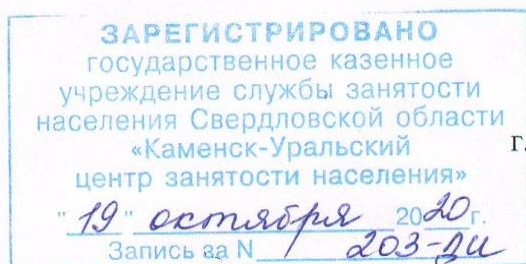 ЗАРЕГИСТРИРОВАНО
государственное казенное
учреждение службы занятости
населения Свердловской области
«Каменск-Уральский
г.
центр занятости населения»
"19" октября 2020г.
Запись за N 203-ди